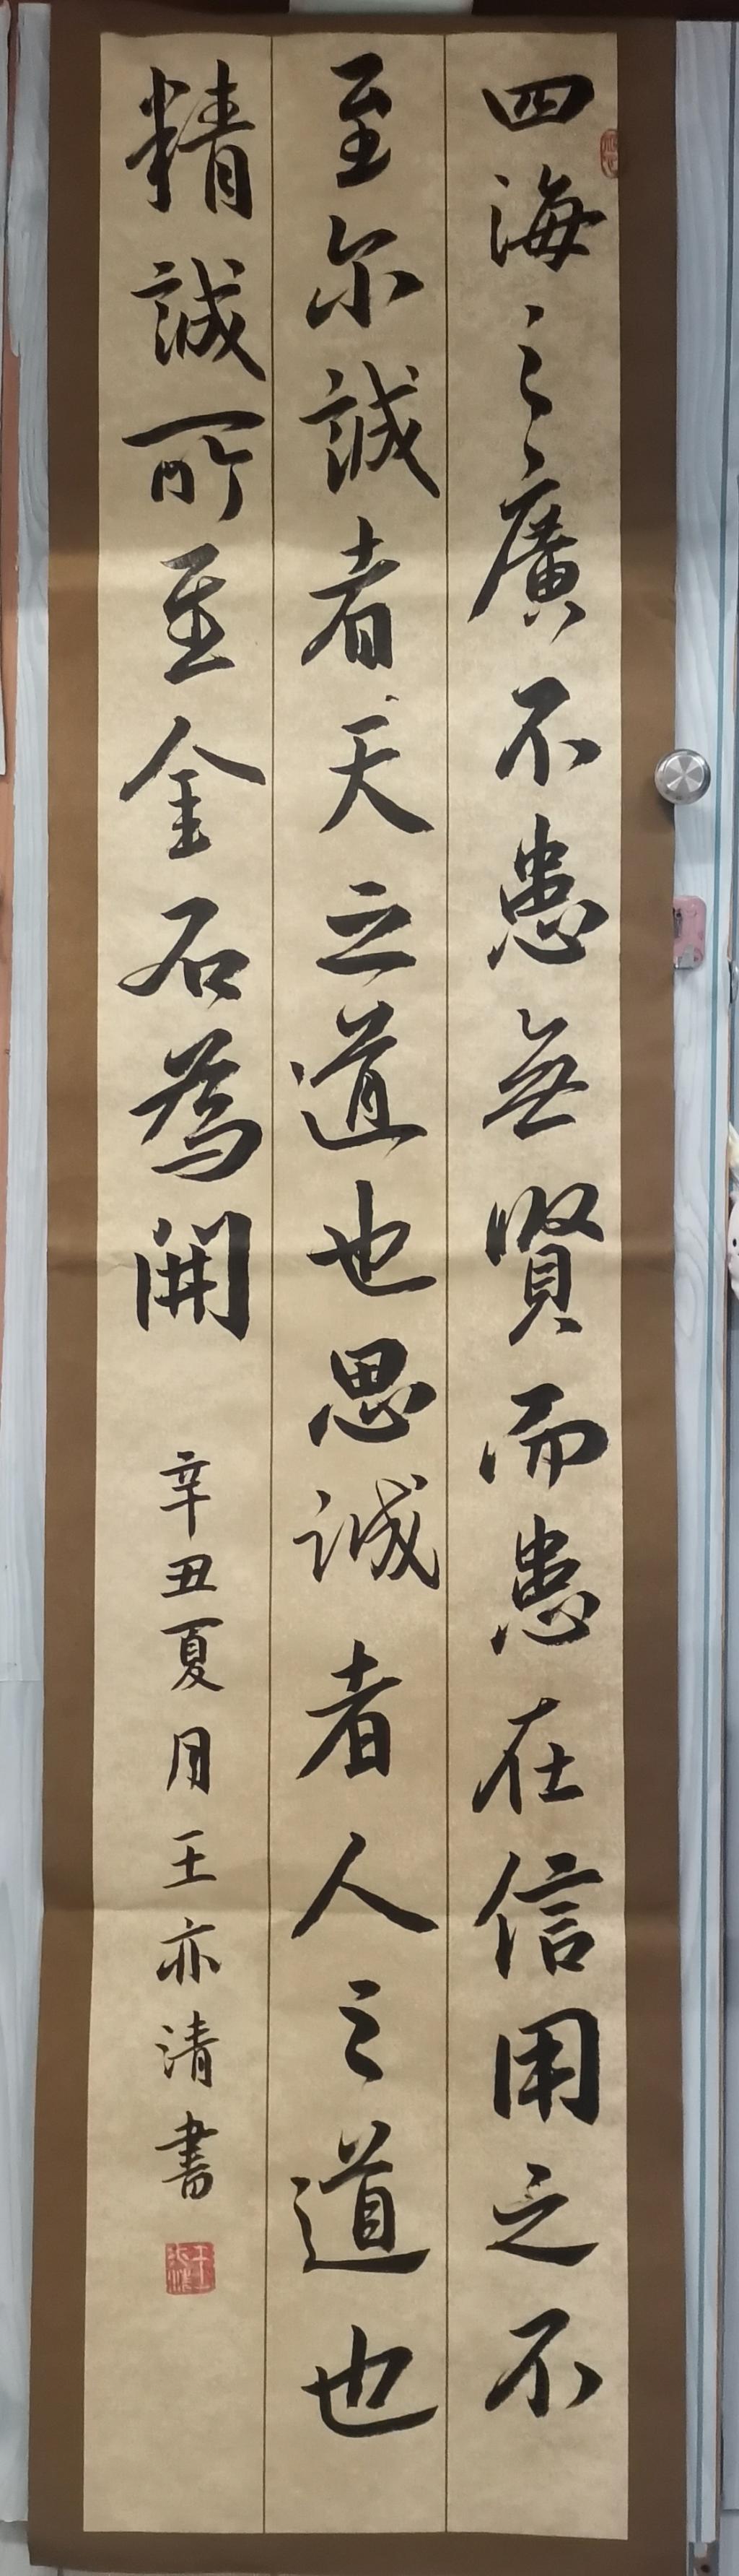 四海之廣不患無賢而患在信用之不
至尔誠者天之道也思誠者人之道也
精誠所至金石為開
辛丑夏月王亦清書